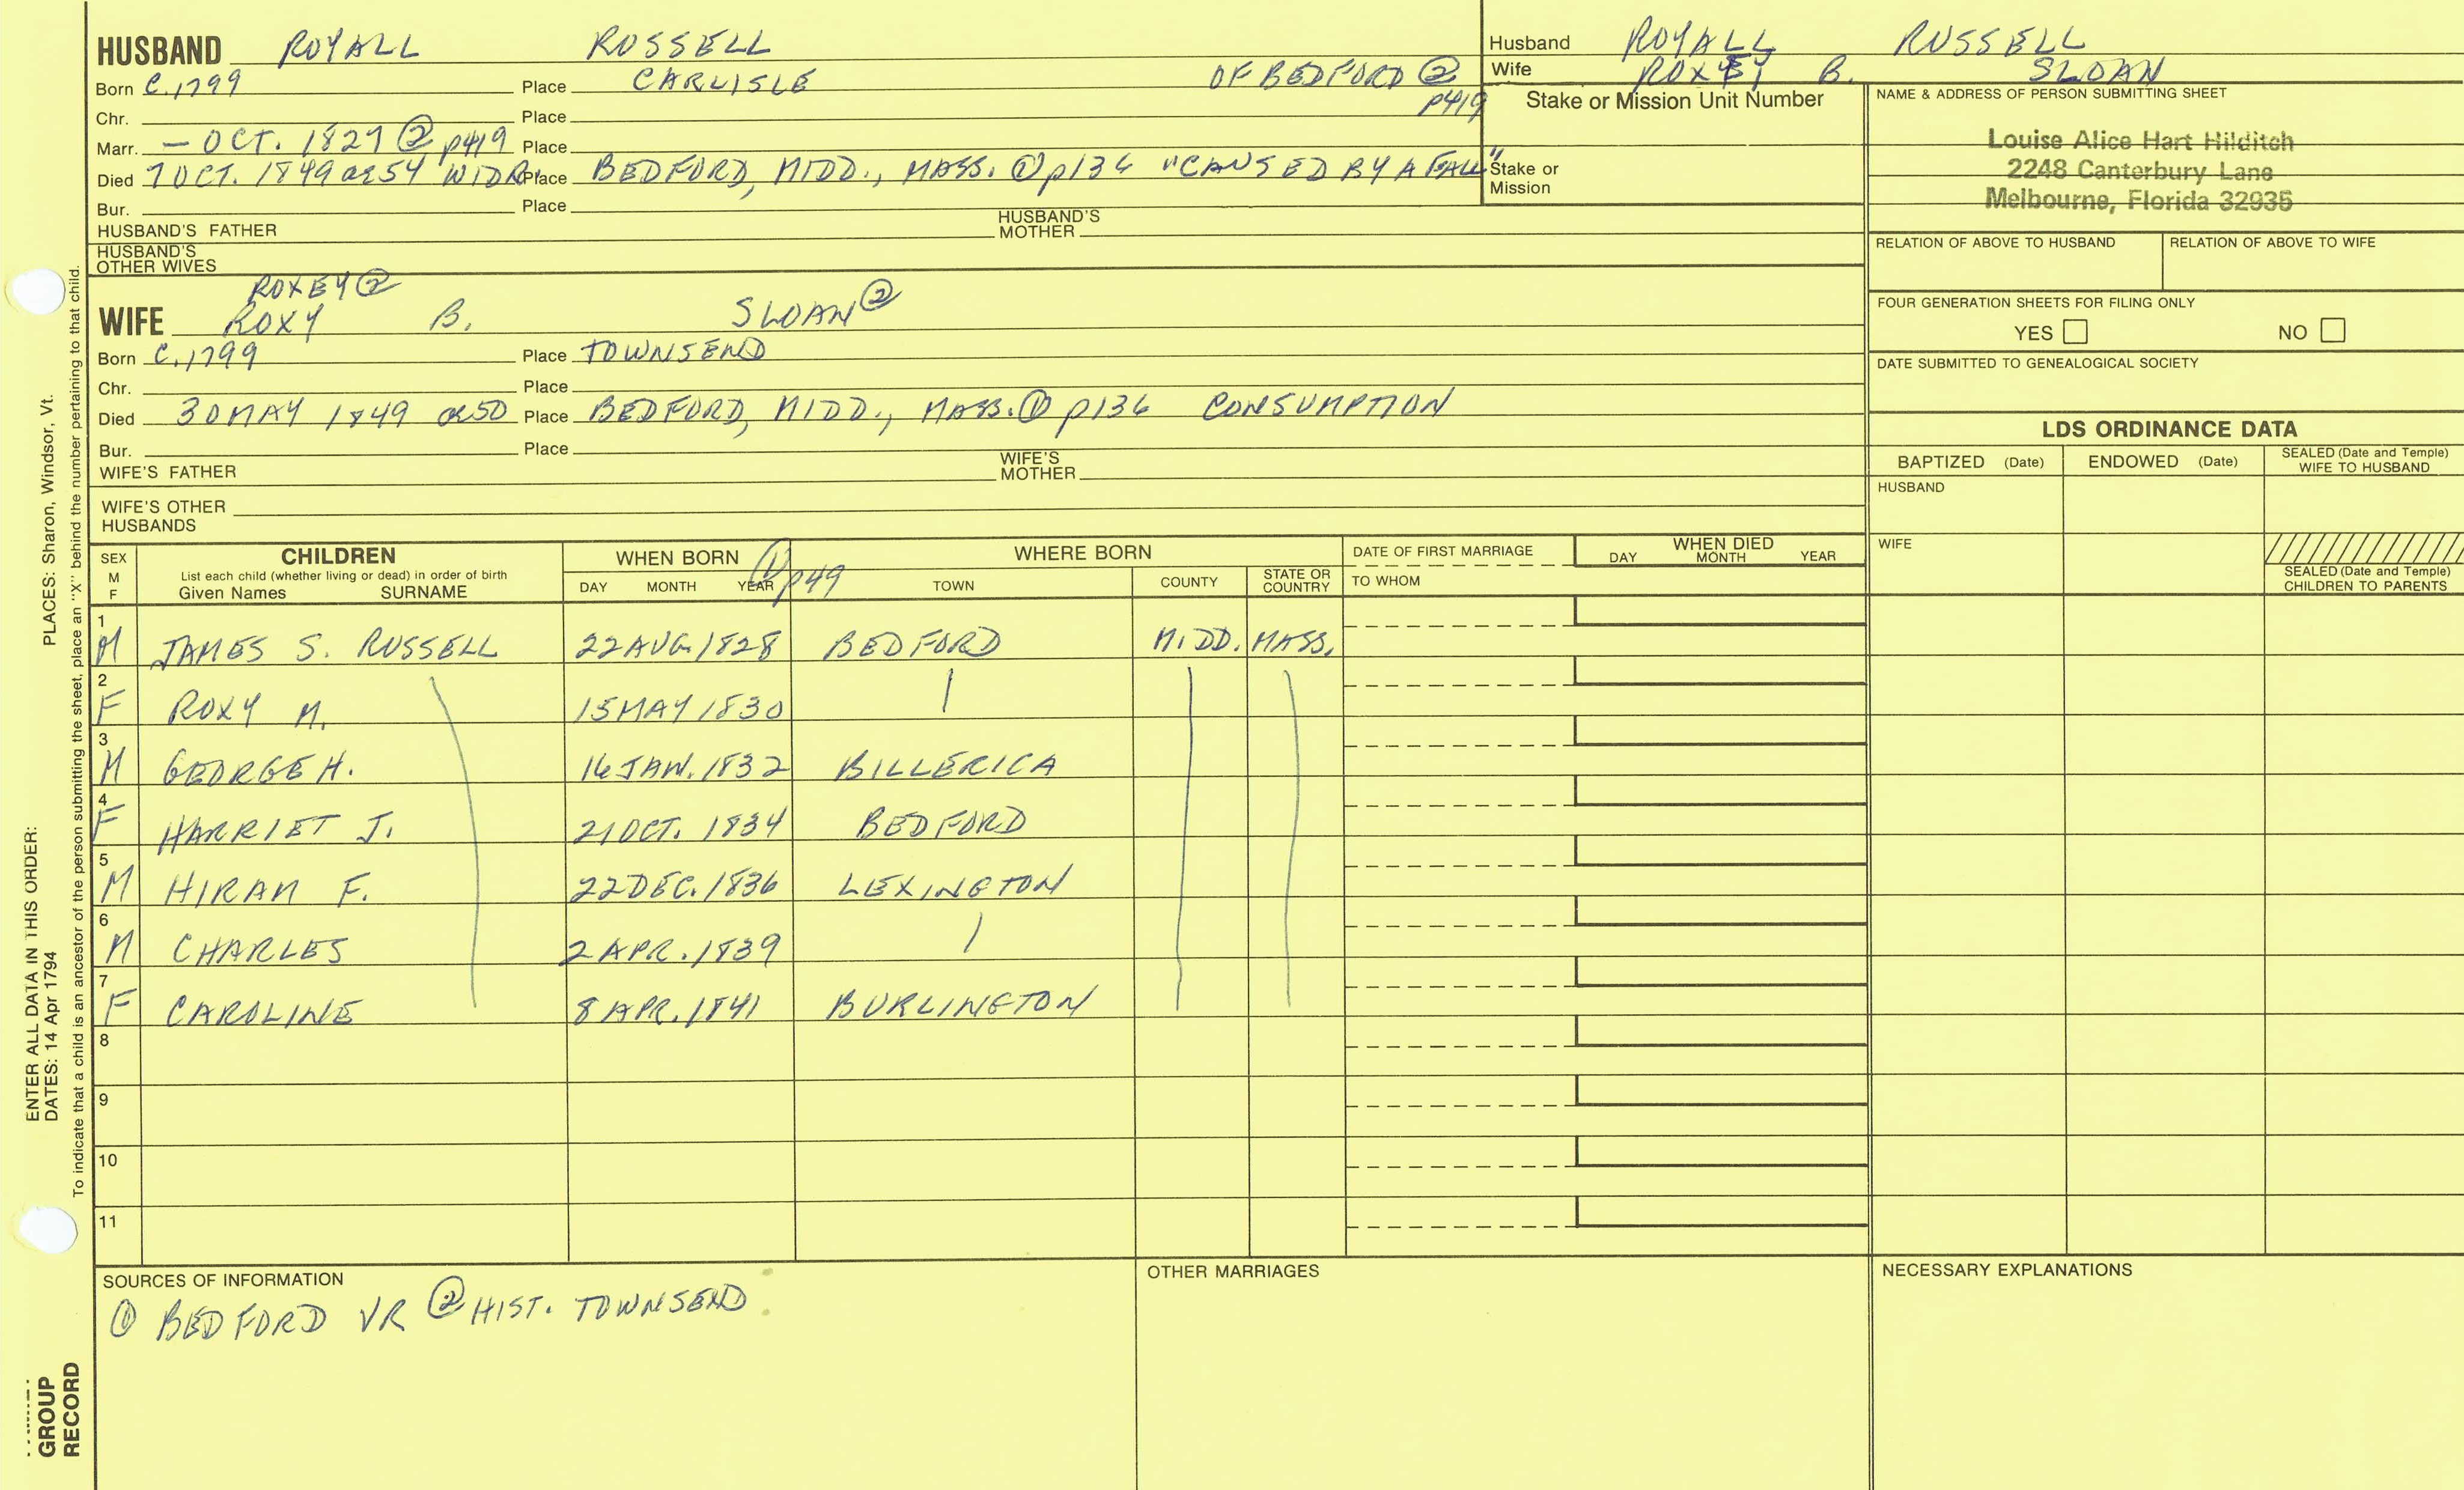 HUSBAND ROYALL RUSSELL
Born C.1799 Place CARLISLE OF BEDFORD ② p419
Chr. Place
Marr. — OCT. 1827 ② p419 Place
Died 7 OCT. 1849 ae54 WIDR Place BEDFORD, MIDD., MASS. ① p136 "CAUSED BY A FALL"
Bur. Place
HUSBAND'S FATHER HUSBAND'S MOTHER
HUSBAND'S OTHER WIVES
ROXEY ②
WIFE ROXY B. SLOAN ②
Born C.1799 Place TOWNSEND
Chr. Place
Died 30 MAY 1849 ae50 Place BEDFORD, MIDD., MASS. ① p136 CONSUMPTION
Bur. Place
WIFE'S FATHER WIFE'S MOTHER
WIFE'S OTHER HUSBANDS
Husband ROYALL RUSSELL
Wife ROXEY B. SLOAN
Stake or Mission Unit Number
Stake or Mission
NAME & ADDRESS OF PERSON SUBMITTING SHEET
Louise Alice Hart Hilditch
2248 Canterbury Lane
Melbourne, Florida 32935
RELATION OF ABOVE TO HUSBAND RELATION OF ABOVE TO WIFE
FOUR GENERATION SHEETS FOR FILING ONLY
YES NO
DATE SUBMITTED TO GENEALOGICAL SOCIETY
LDS ORDINANCE DATA
BAPTIZED (Date) ENDOWED (Date) SEALED (Date and Temple) WIFE TO HUSBAND
HUSBAND
WIFE
SEALED (Date and Temple) CHILDREN TO PARENTS
SEX M F CHILDREN
List each child (whether living or dead) in order of birth
Given Names SURNAME
WHEN BORN ① p49
DAY MONTH YEAR
WHERE BORN
TOWN COUNTY STATE OR COUNTRY
DATE OF FIRST MARRIAGE
TO WHOM
WHEN DIED
DAY MONTH YEAR
1 M JAMES S. RUSSELL 22 AUG. 1828 BEDFORD MIDD. MASS.
2 F ROXY M. 15 MAY 1830
3 M GEORGE H. 16 JAN. 1832 BILLERICA
4 F HARRIET J. 21 OCT. 1834 BEDFORD
5 M HIRAM F. 22 DEC. 1836 LEXINGTON
6 M CHARLES 2 APR. 1839
7 F CAROLINE 8 APR. 1841 BURLINGTON
8
9
10
11
SOURCES OF INFORMATION
① BEDFORD VR ② HIST. TOWNSEND
OTHER MARRIAGES
NECESSARY EXPLANATIONS
ENTER ALL DATA IN THIS ORDER:
DATES: 14 Apr 1794 PLACES: Sharon, Windsor, Vt.
To indicate that a child is an ancestor of the person submitting the sheet, place an "X" behind the number pertaining to that child.
GROUP
RECORD